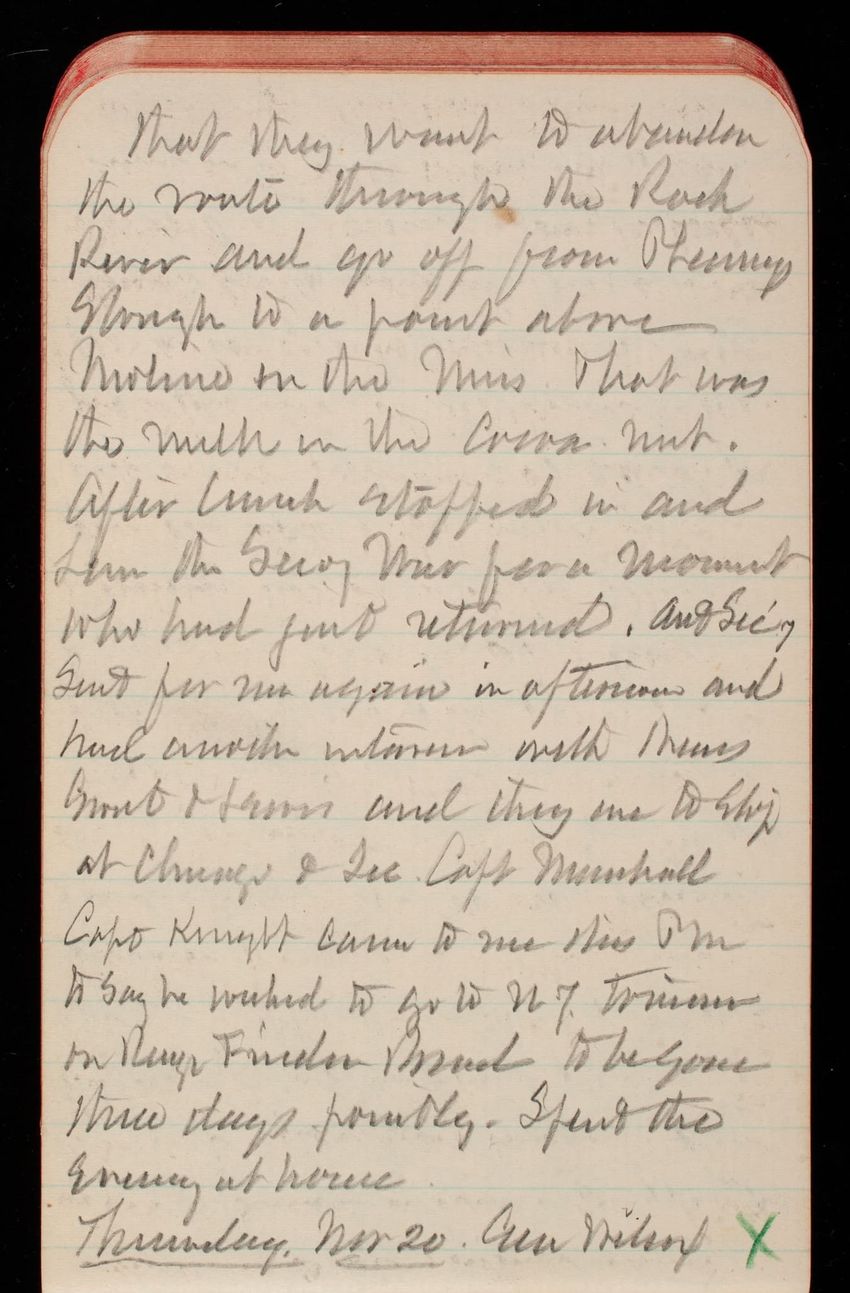 that they want to abandon
the route through the Rock
River and go off from
Slough to a point above
Moline on the Miss That was
the milk in the Cocoa nut.
After lunch stopped in and
saw the Secy War for a moment
who had just returned. And Sec'y
Sent for me again in afternoon and
had another interview with
and they are to ship
at Chicago & See Capt Marshall
Capt Knight came to me this PM
to say he wished to go to N Y. tomorrow
on Range Finder Board to be gone
three days possibly. Spent the
Evening at home
Thursday. Nov 20. Gen
X